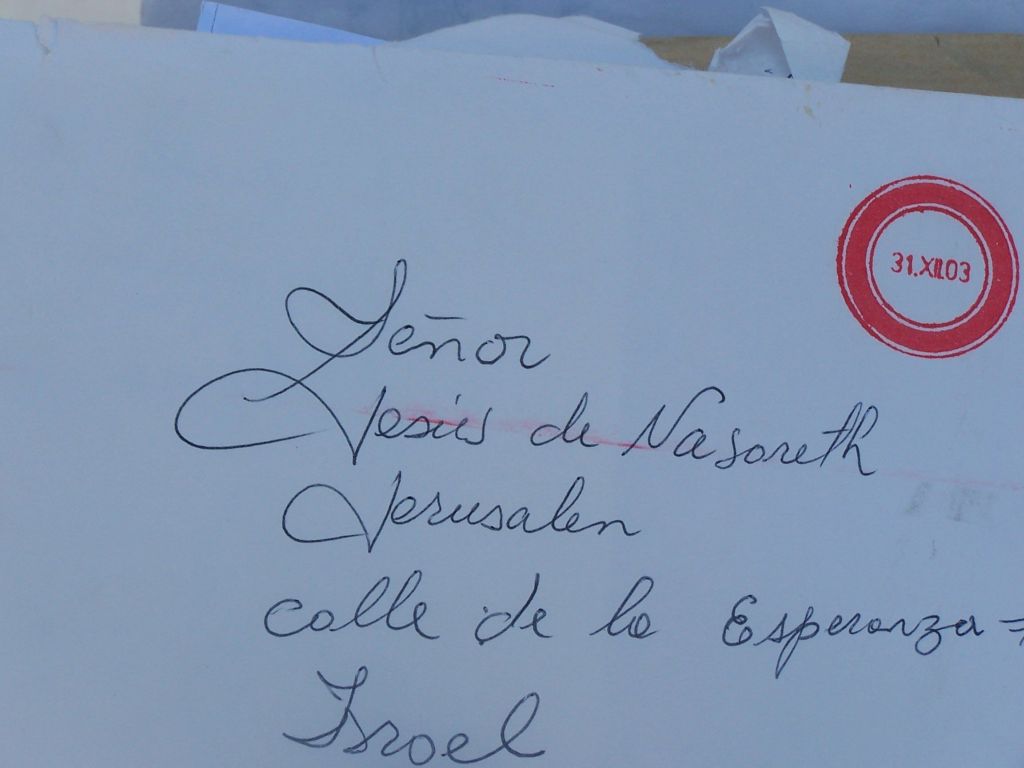 31.XII.03
Señor
Jesús de Nasareth
Jerusalen
calle de la Esperanza
Israel